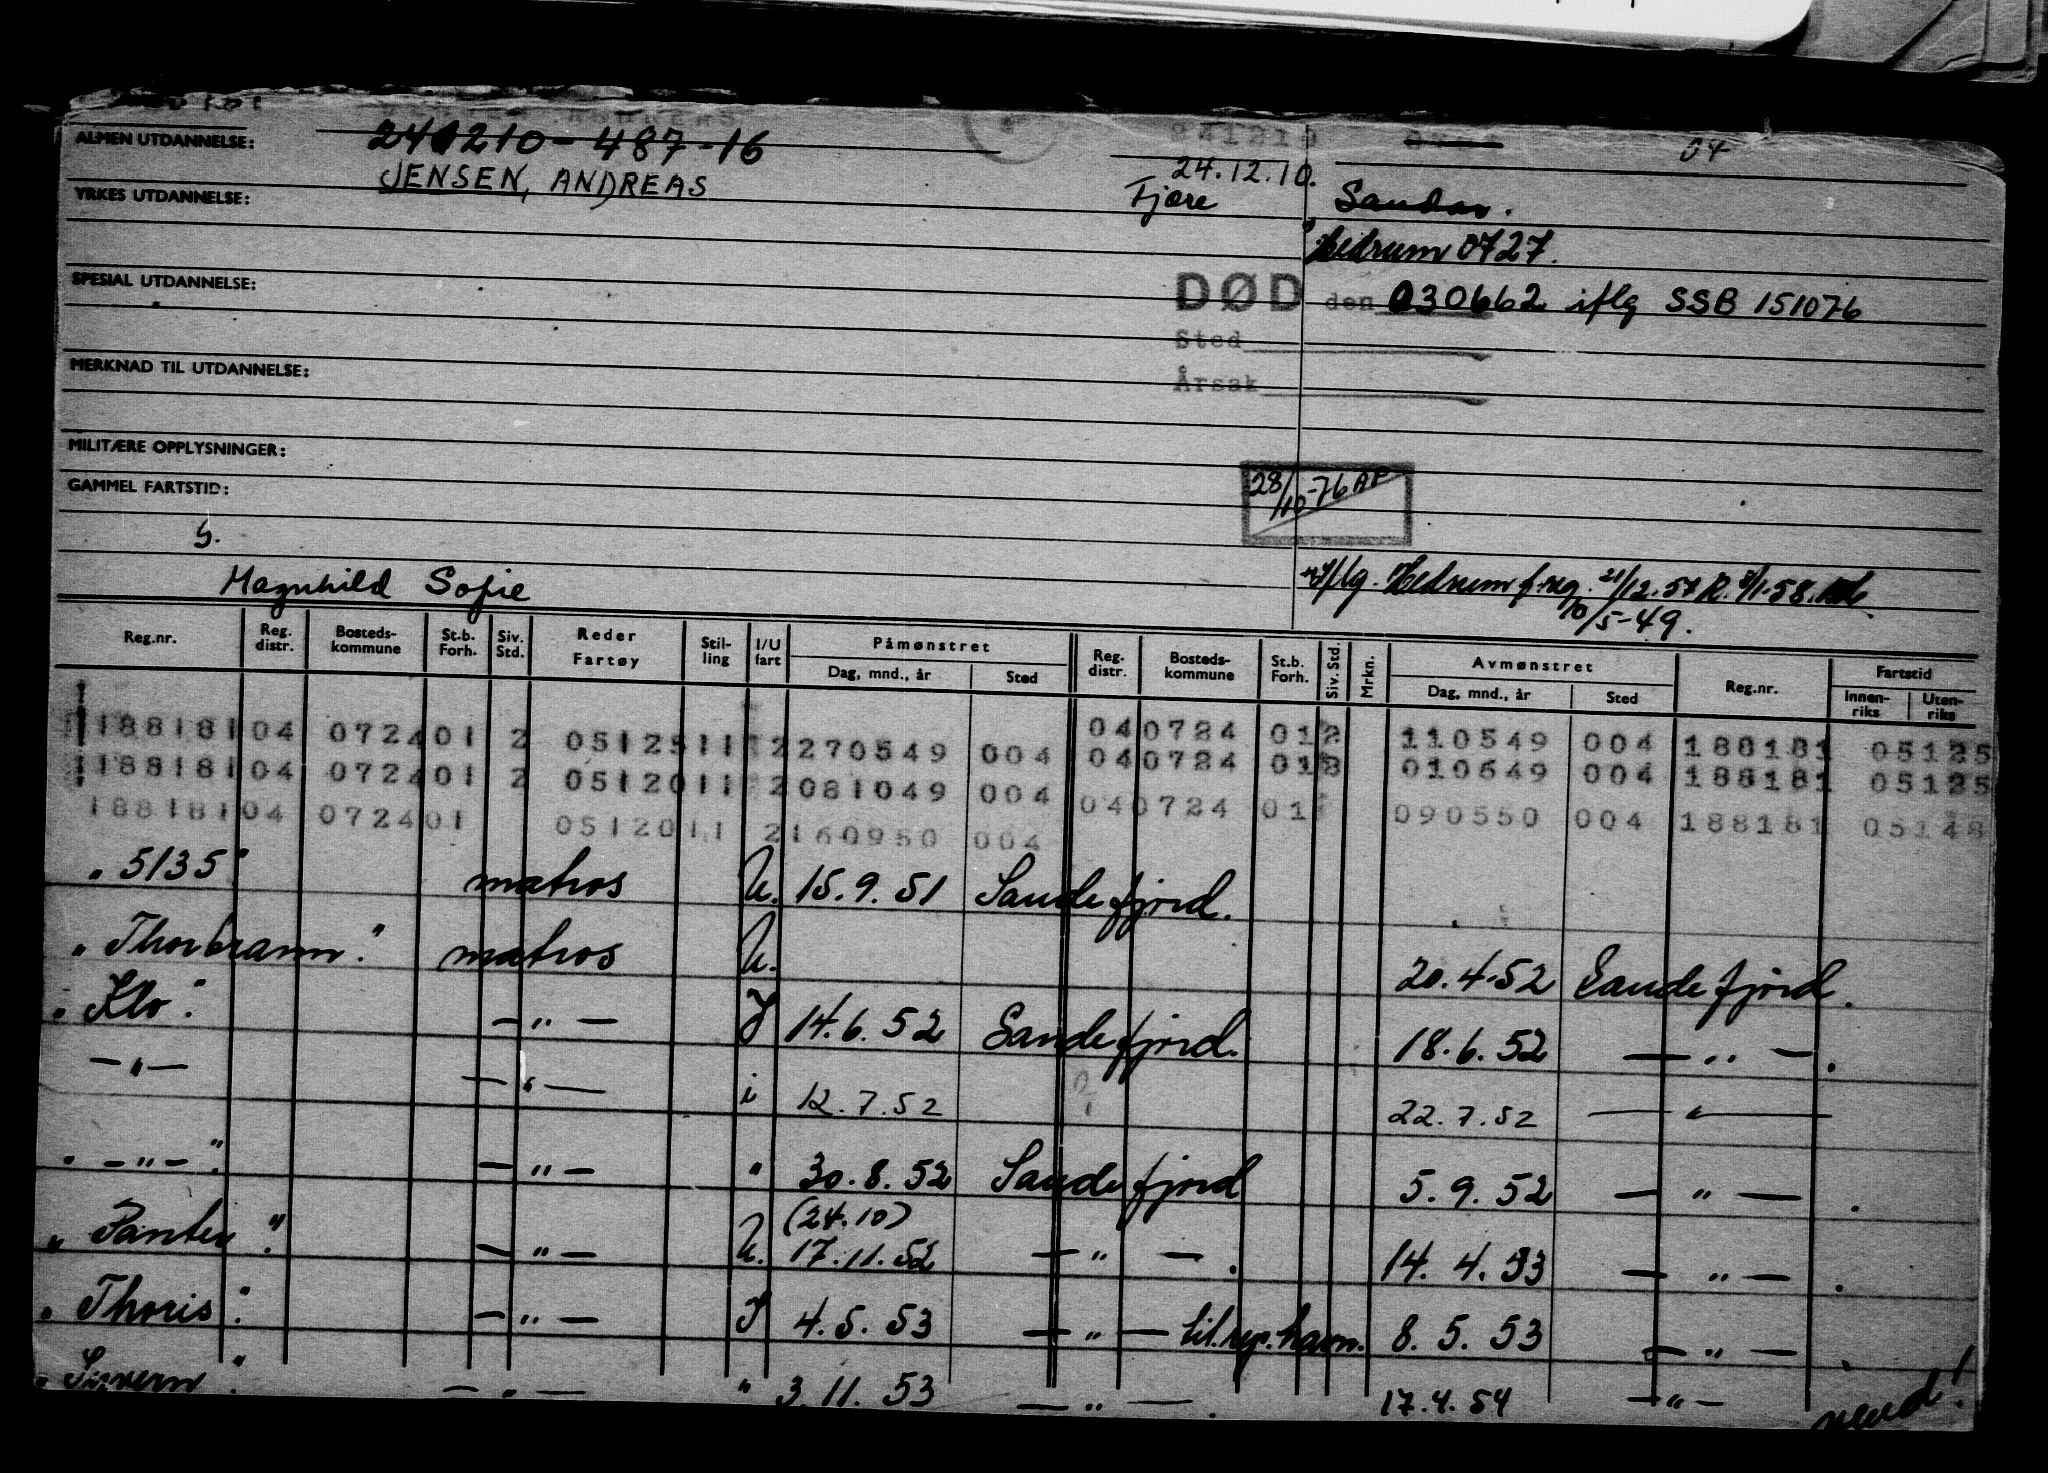 ALMEN UTDANNELSE: 241210-487-16 241210 04
JENSEN, ANDREAS 24.12.10.
YRKES UTDANNELSE: Fjære Sandar.
Hedrum 0727.
SPESIAL UTDANNELSE: DØD den 030662 iflg SSB 151076
Sted
MERKNAD TIL UTDANNELSE: Årsak
MILITÆRE OPPLYSNINGER:
GAMMEL FARTSTID: 28/10-76 AP
G.
Magnhild Sofie iflg. Hedrum f.reg. 21/12.57 R. 8/1-58.
10/5-49.
Reg.nr. Reg. distr. Bosteds-kommune St.b. Forh. Siv. Std. Reder Fartøy Stil-ling I/U fart Påmønstret Reg. distr. Bosteds-kommune St.b. Forh. Siv. Std. Mrkn. Avmønstret Reg.nr. Fartstid
Dag, mnd., år Sted Dag, mnd., år Sted Innen-riks Uten-riks
188181 04 0724 01 2 05125 11 2 270549 004 04 0724 01 2 110549 004 188181 05125
188181 04 0724 01 2 05120 11 2 081049 004 04 0724 01 3 010649 004 188181 05125
188181 04 0724 01 05120 11 2 160950 004 04 0724 01 090550 004 188181 05148
"5135" matros U. 15.9.51 Sandefjord.
"Thorbrann." matros U. 20.4.52 Sandefjord.
"Klo". — " — I 14.6.52 Sandefjord. 18.6.52 — " —.
— " — — " — i 12.7.52 22.7.52 — " —
" — " — ". — " — " 30.8.52 Sandefjord 5.9.52 — " —.
(24.10)
"Panter". — " — U. 17.11.52 — " —. 14.4.53 — " —.
"Thoris". — " — I 4.5.53 — " — til.rep.havn. 8.5.53 — " —.
— " — " 3.11.53 — " —. 17.4.54 — " —
vend!